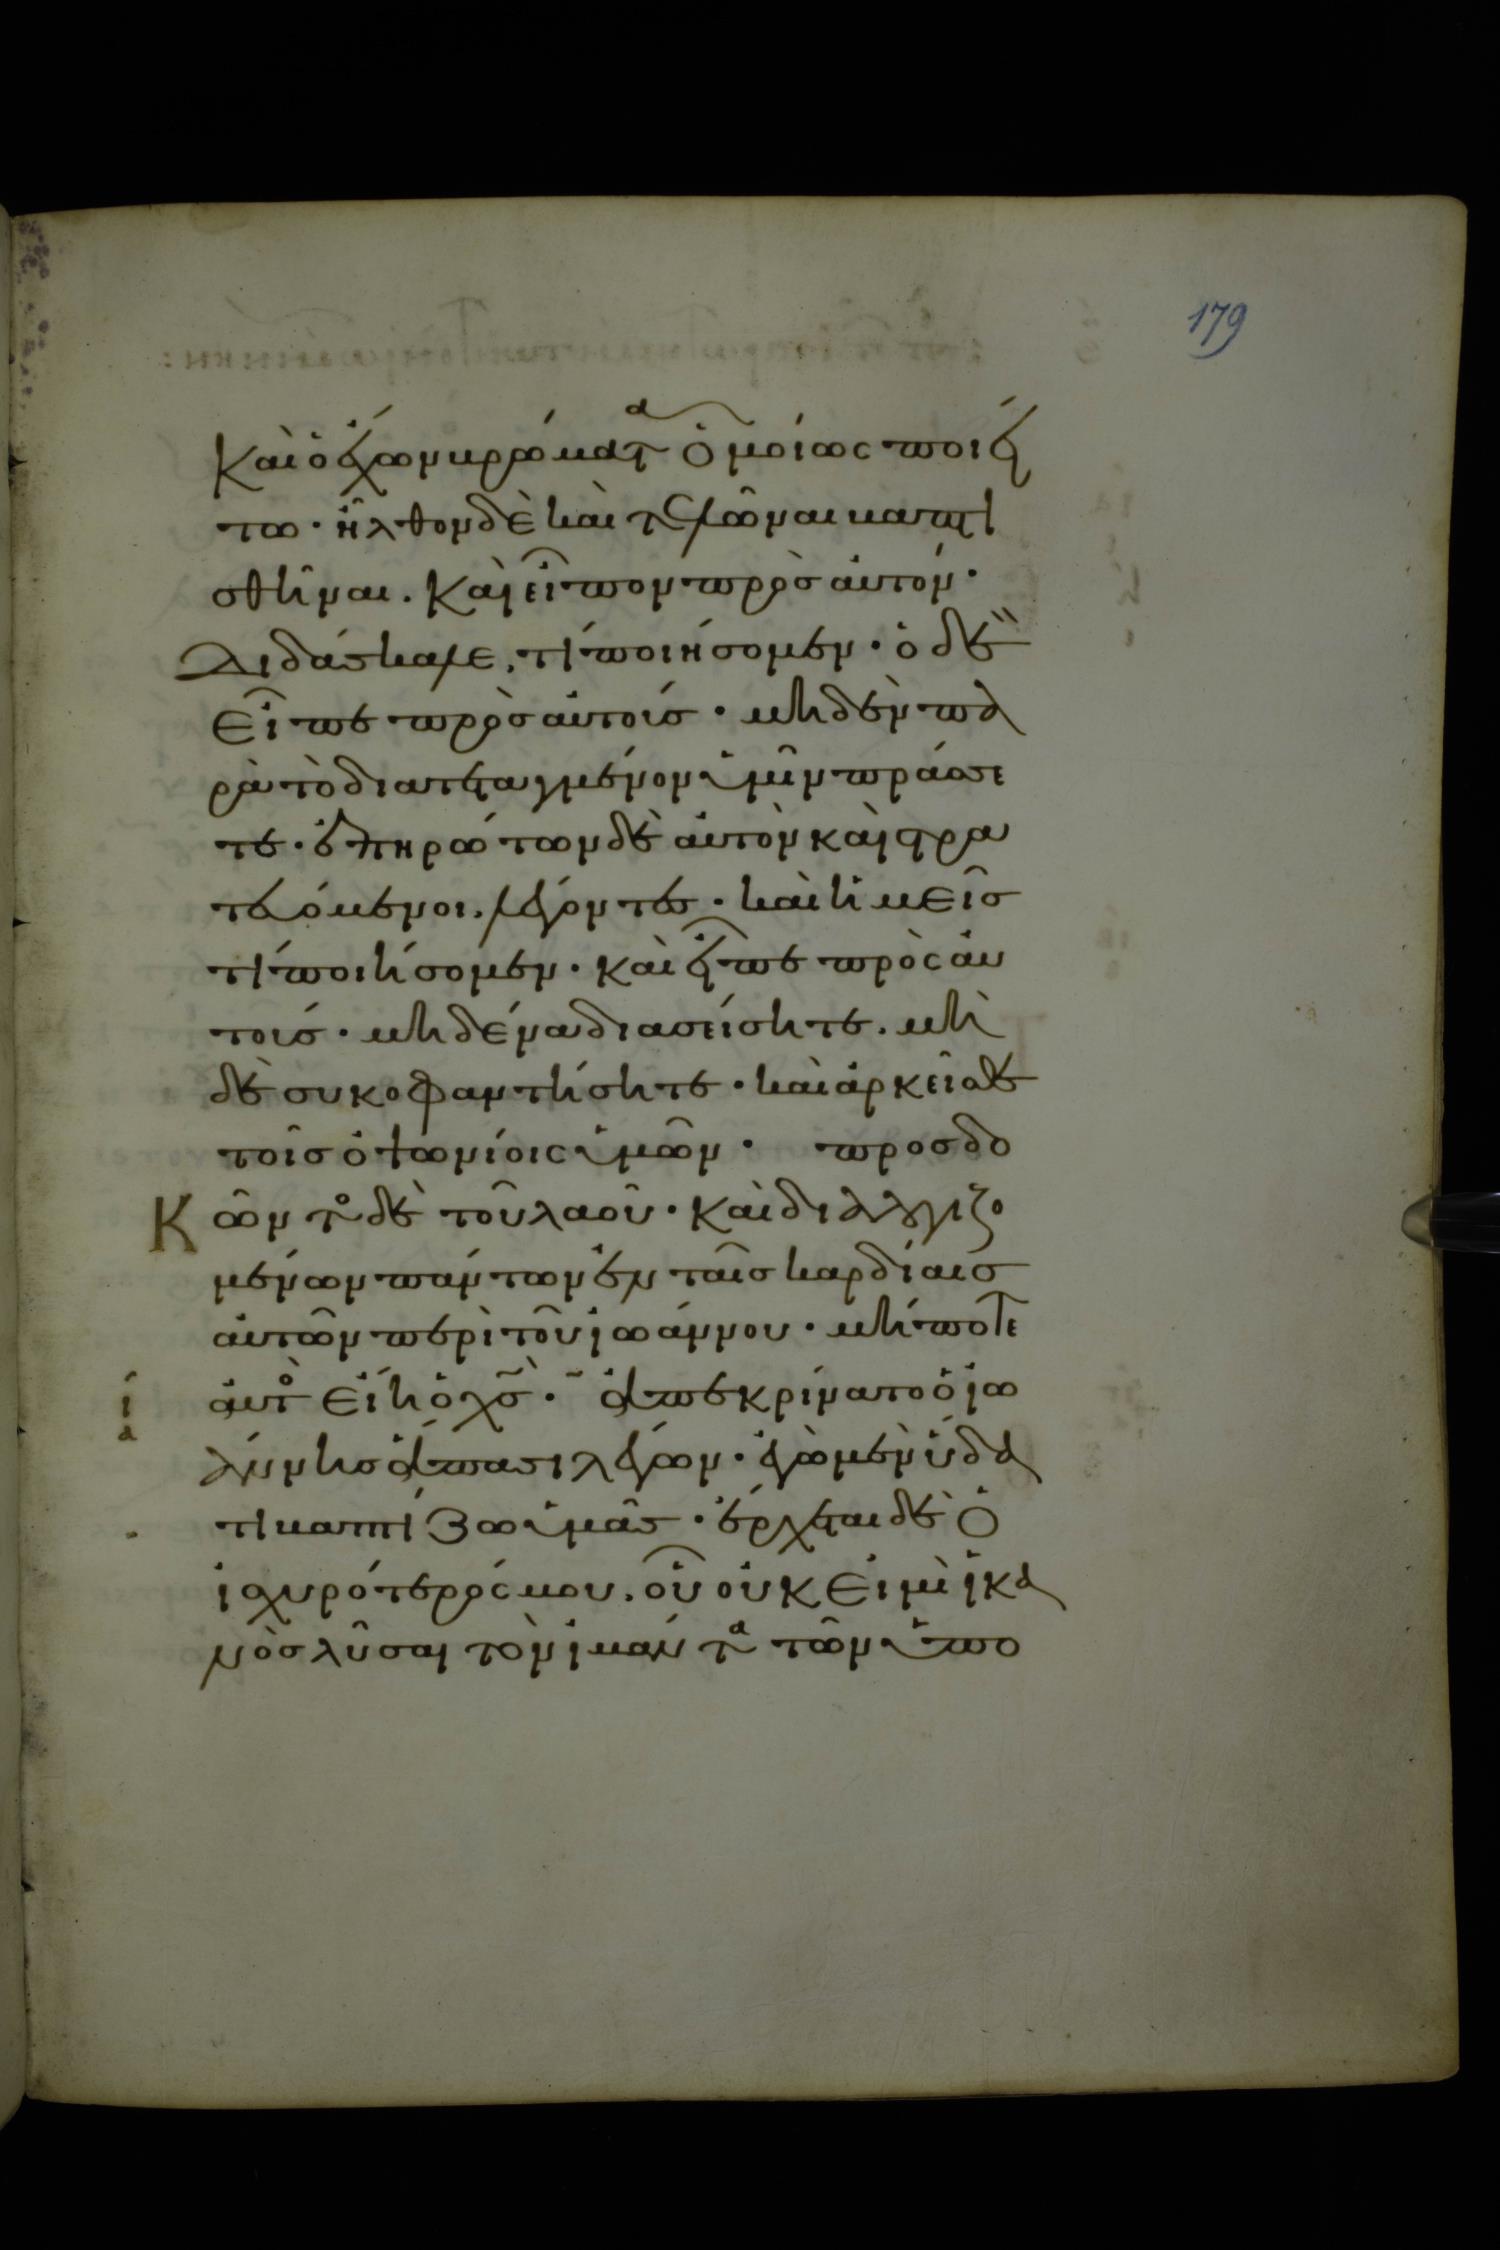 179
καὶ ὁ ἔχων βρώματα ὁμοίως ποιεί
τω· ἦλθον δὲ καὶ τελῶναι βαπτι
σθῆναι. καὶ εἶπον πρὸς αὐτόν·
διδάσκαλε, τί ποιήσομεν· ὁ δὲ
εἶπε πρὸς αὐτούς· μηδὲν πλ
ρὰ τὸ διατεταγμένον ὑμῖν πράσσε
τε· ἐπηρώτων δὲ αὐτὸν καὶ στρα
τευόμενοι. λέγοντες· καὶ ἡμεῖς
τί ποιήσομεν· καὶ εἶπε πρὸς αὐ
τούς· μηδένα διασείσητε. μη
δὲ συκοφαντήσητε· καὶ ἀρκεῖσθε
τοῖς ὀψωνίοις ὑμῶν· προσδο
κῶντος δὲ τοῦ λαοῦ· καὶ διαλογιζο
μένων πάντων ἐν ταῖς καρδίαις
αὐτῶν περὶ τοῦ ἰωάννου· μήποτε
ια αὐτὸς εἴη ὁ χς· ἀπεκρίνατο ὁ ἰω
άννης ἅπασι λέγων· ἐγὼ μὲν ὕδα
τι βαπτίζω ὑμᾶς· ἔρχεται δὲ ὁ
ἰσχυρότερός μου. οὗ οὐκ εἰμὶ ἱκα
νὸς λῦσαι τὸν ἱμάντα τῶν ὑπο